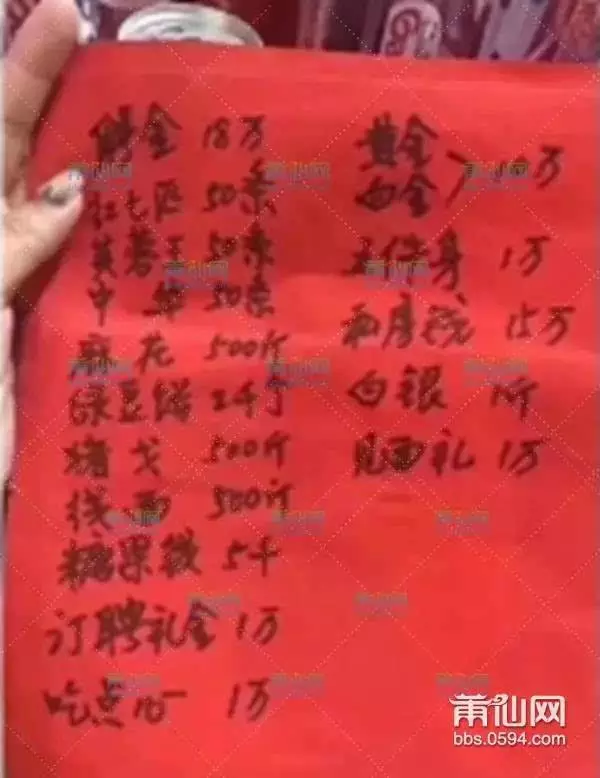 聘金 18万
红七匹 50条
芙蓉王 50条
中华 50条
麻花 500斤
绿豆饼 2千个
猪 500斤
线面 500斤
糖果饺 5千
订聘礼金 1万
吃点心 1万
黄金
白金 万
1万
私房钱 15万
白银 1斤
见面礼 1万
莆仙网
bbs.0594.com